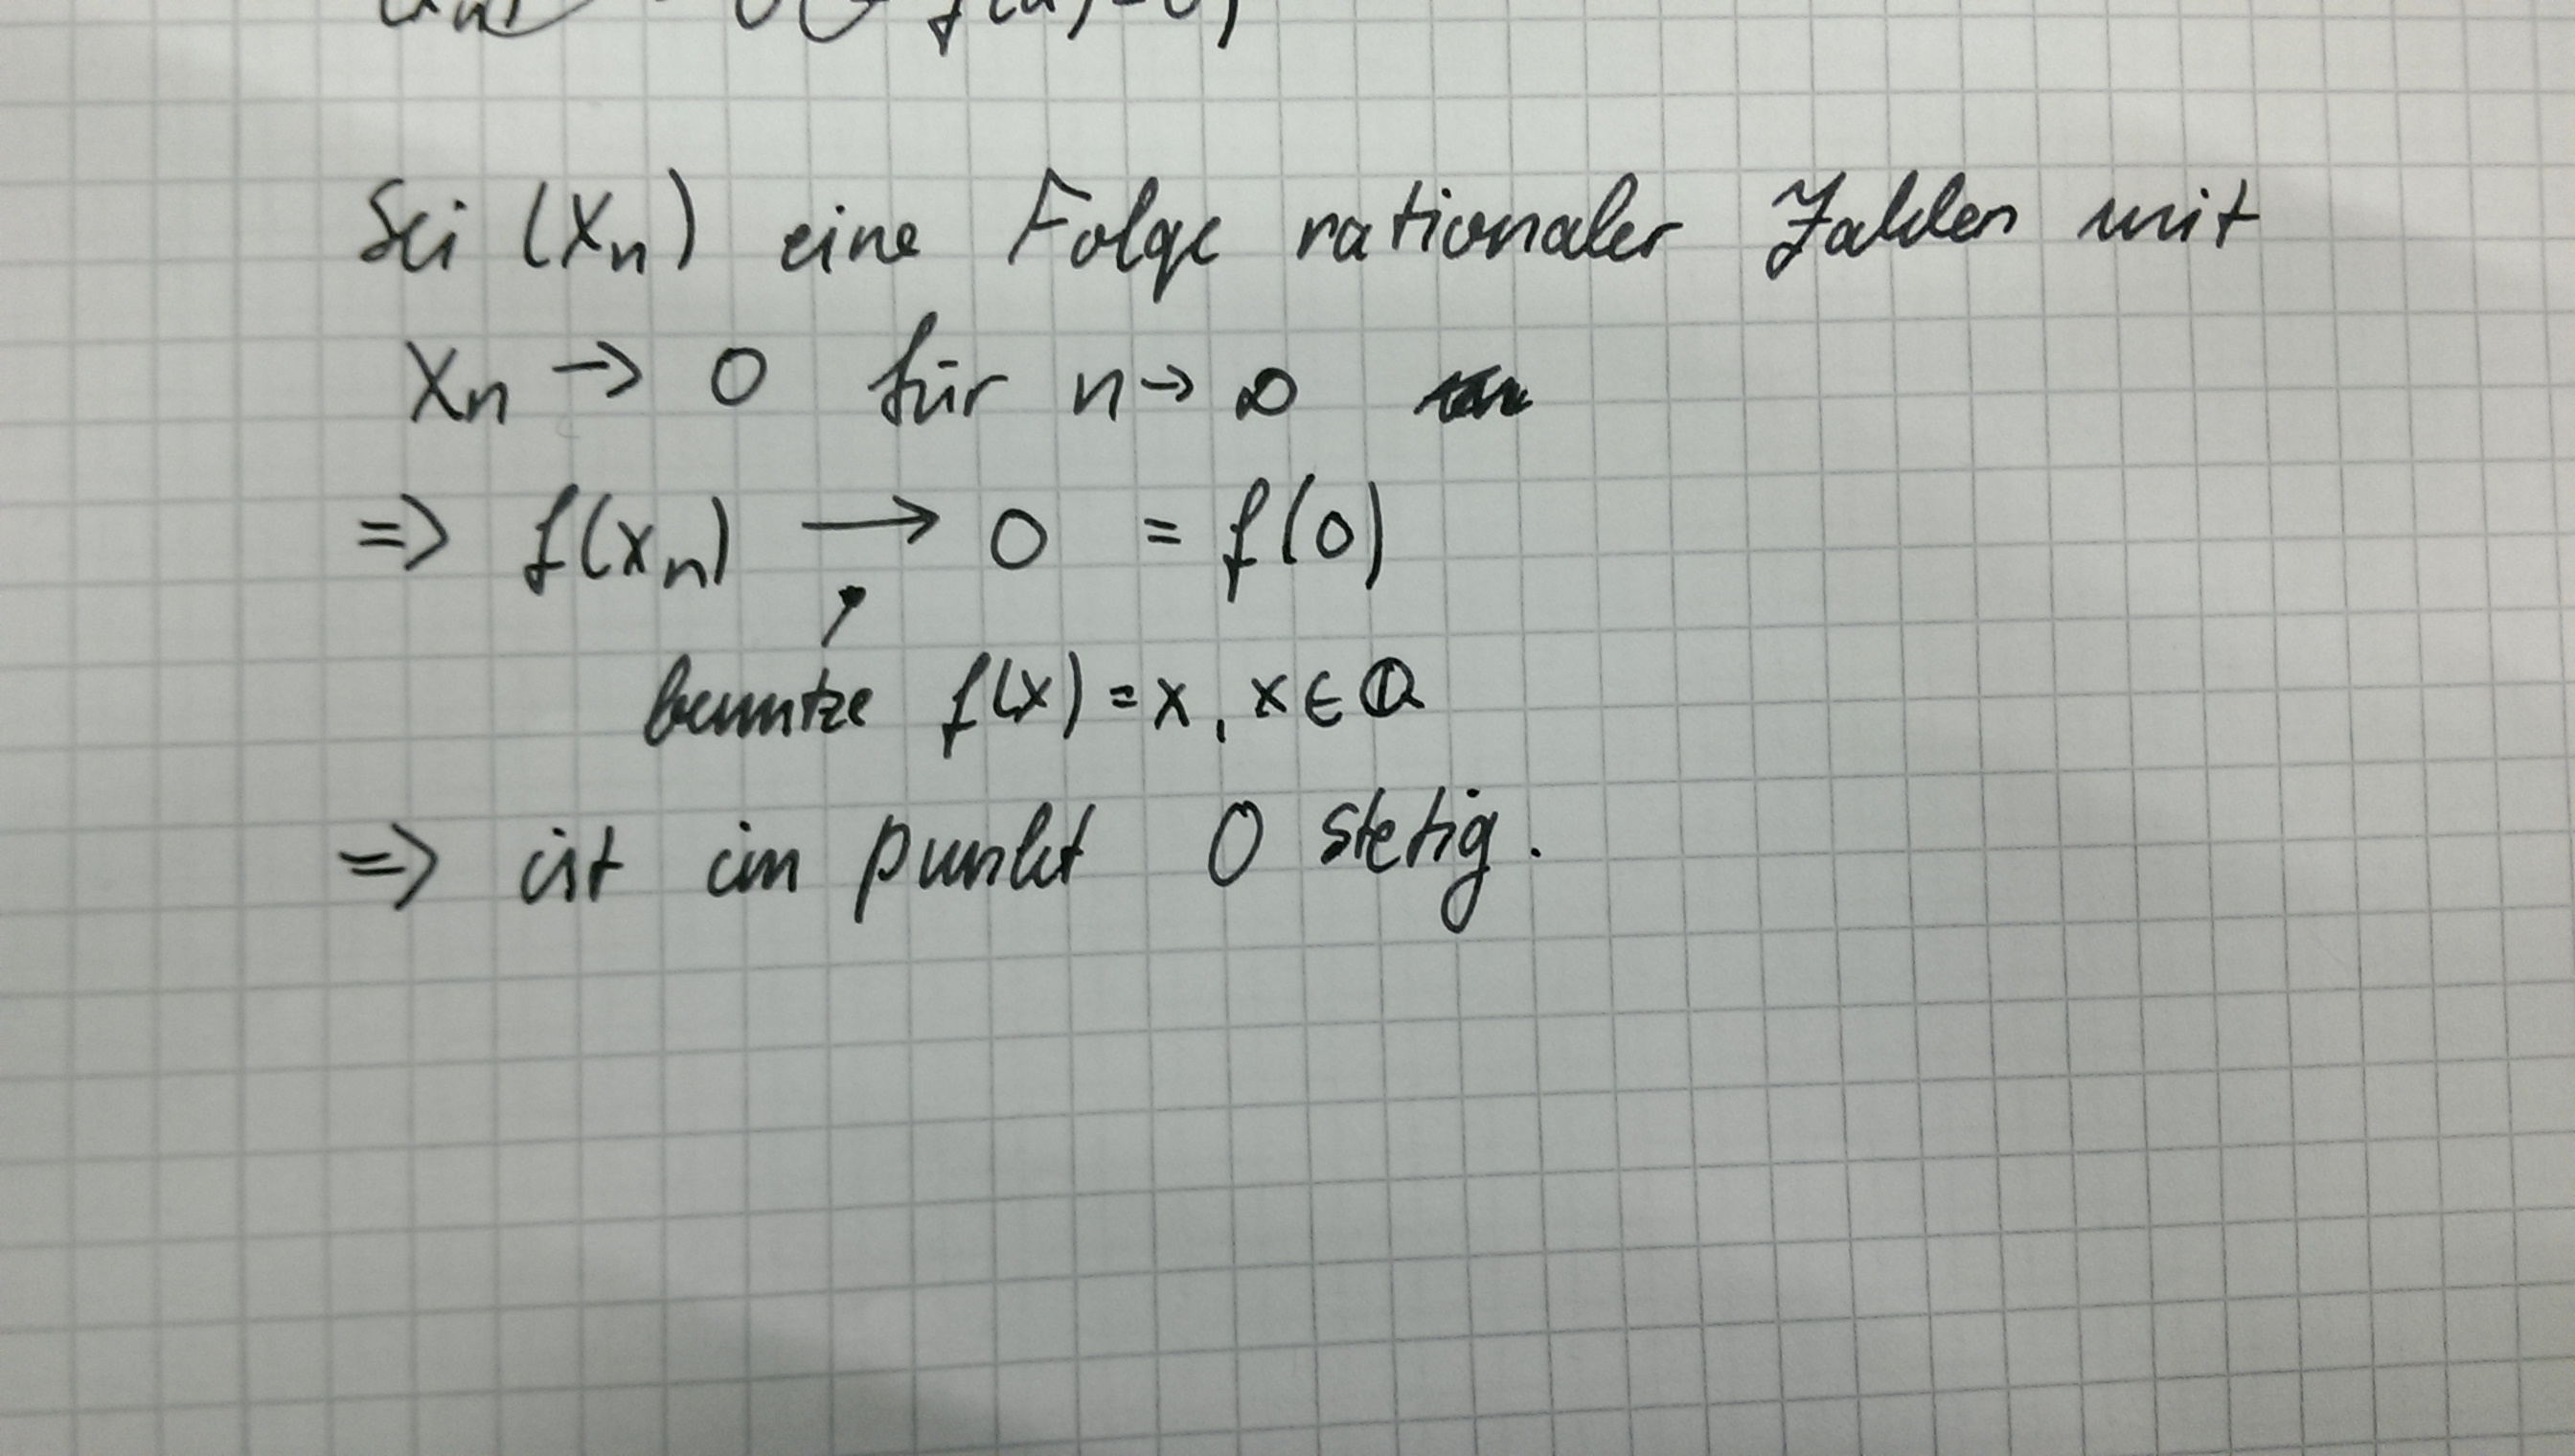 f(x) = 0)
Sei (xₙ) eine Folge rationaler Zahlen mit
xₙ → 0 für n → ∞
=> f(xₙ) → 0 = f(0)
benutze f(x) = x, x ∈ ℚ
=> ist im punkt 0 stetig.